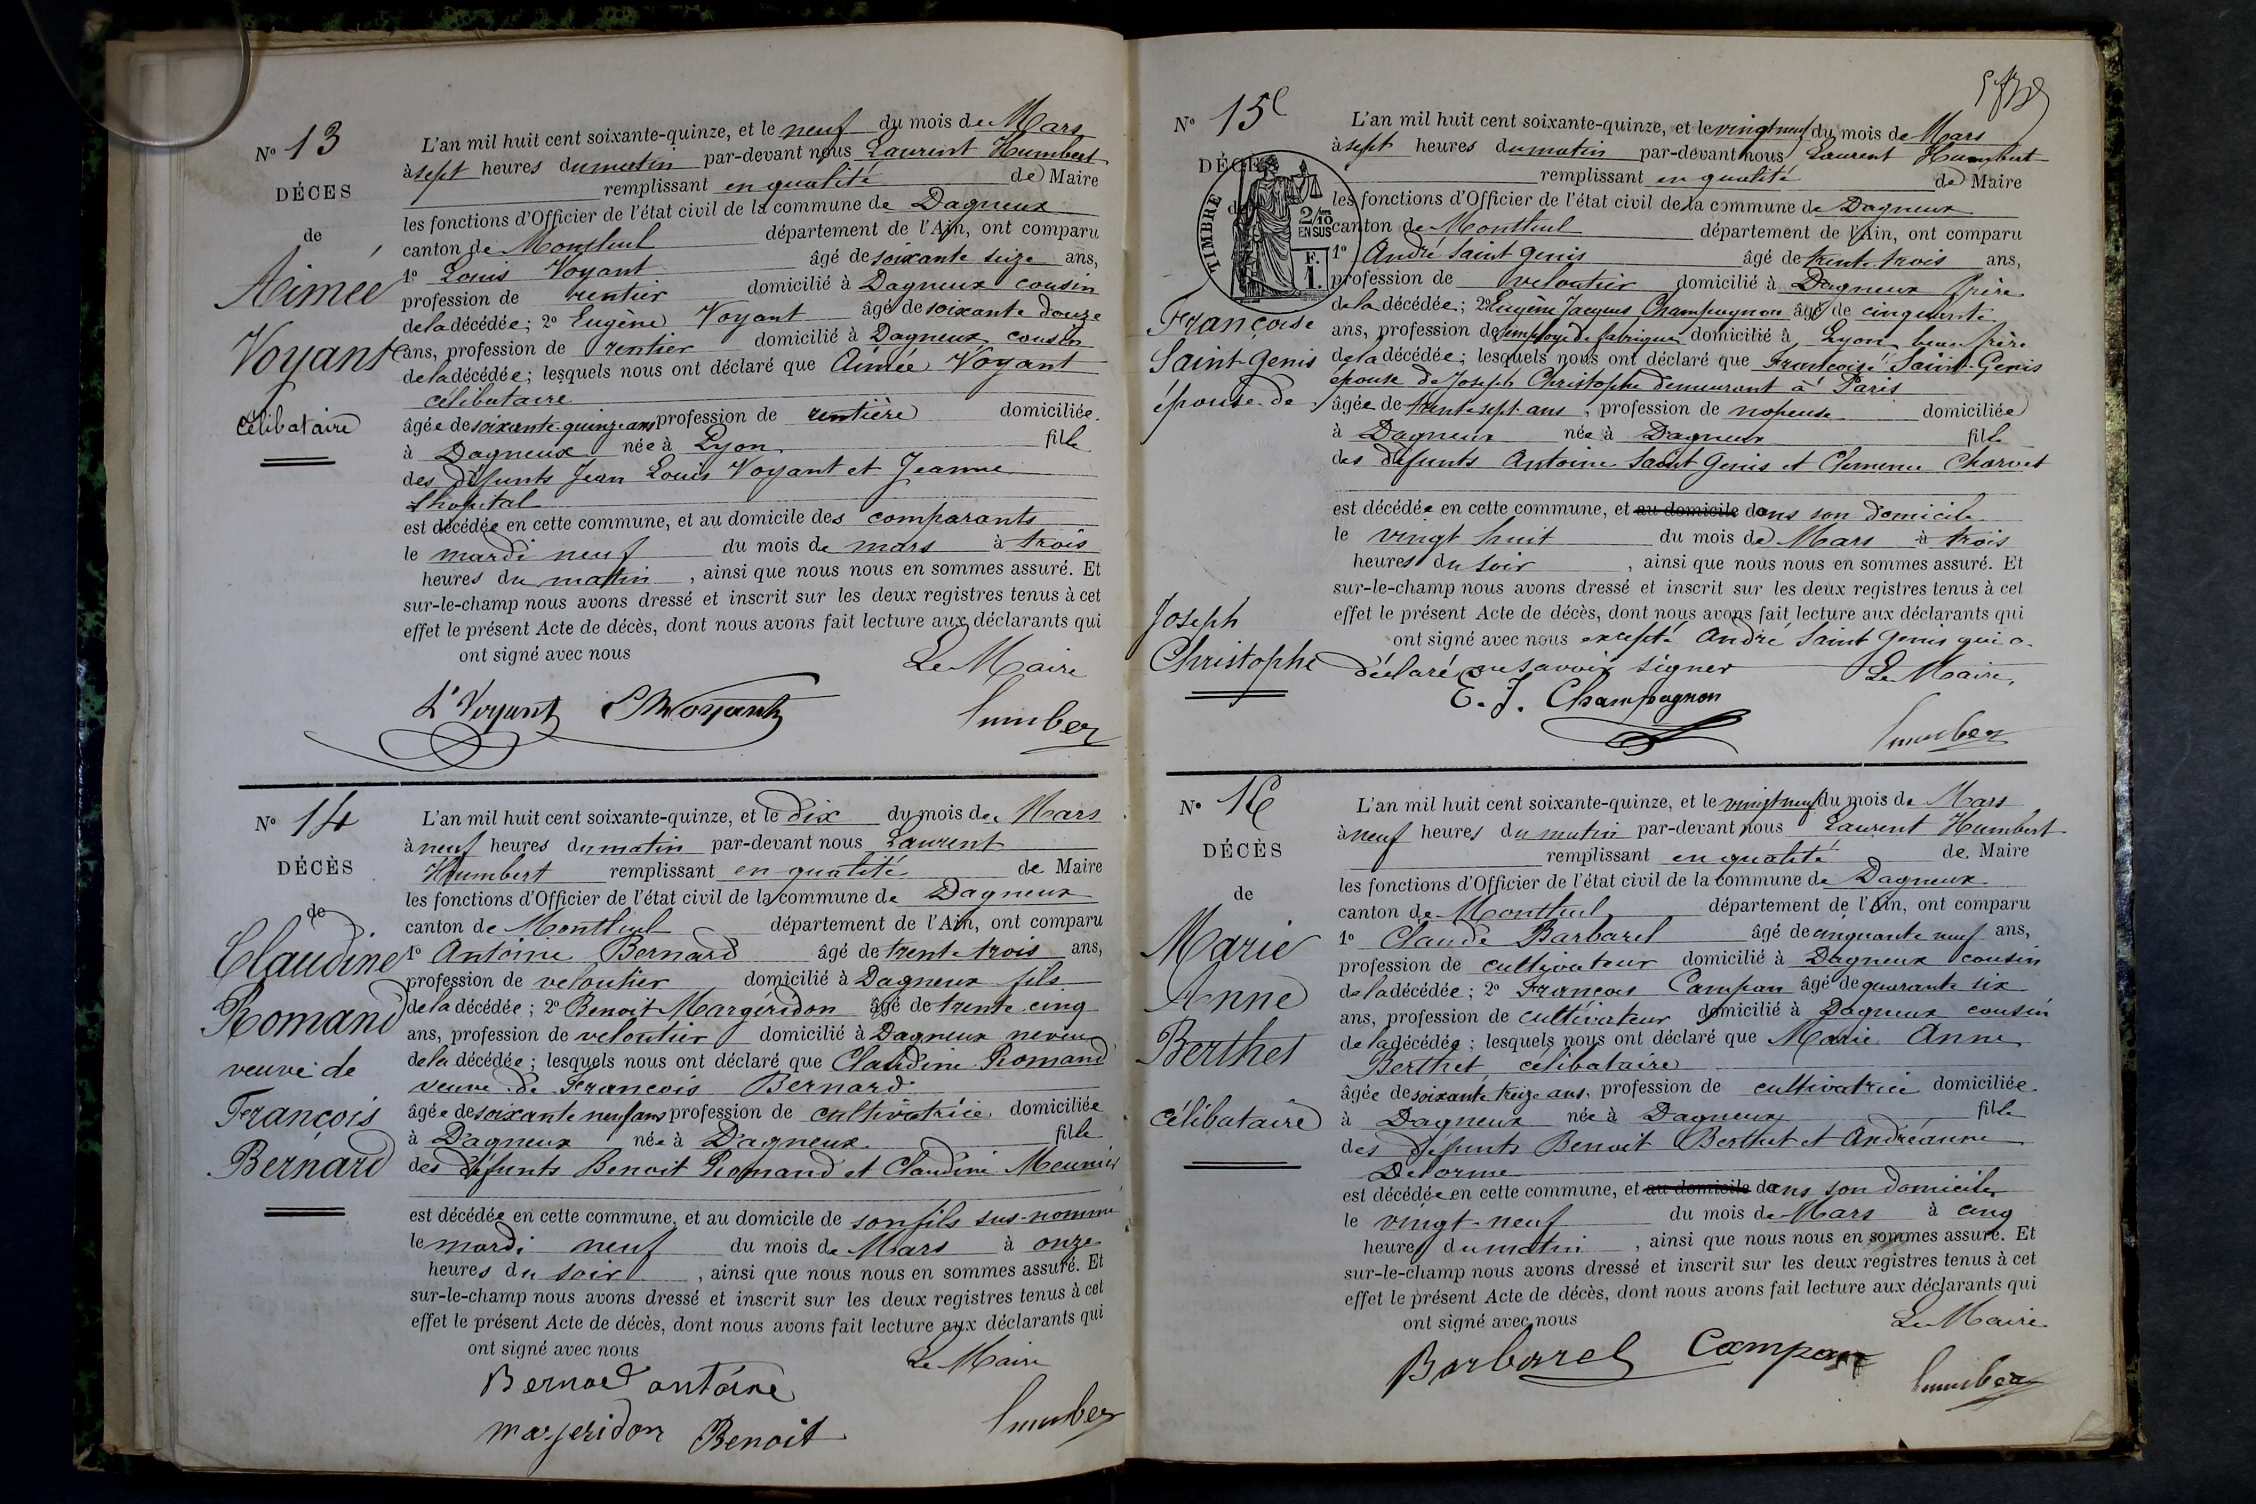 N° 13
DÉCES
de
Aimée
Voyant
célibataire
L'an mil huit cent soixante-quinze, et le neuf du mois de Mars
à sept heures du matin par-devant nous Laurent Humbert
remplissant en qualité de Maire
les fonctions d'Officier de l'état civil de la commune de Dagneux
canton de Montluel département de l'Ain, ont comparu
1° Louis Voyant âgé de soixante seize ans,
profession de rentier domicilié à Dagneux cousin
de la décédée; 2° Eugène Voyant âgé de soixante douze
ans, profession de rentier domicilié à Dagneux cousin
de la décédée; lesquels nous ont déclaré que Aimée Voyant
célibataire
âgée de soixante-quinze ans profession de rentière domiciliée
à Dagneux née à Lyon fille
des défunts Jean Louis Voyant et Jeanne
Lhopital
est décédée en cette commune, et au domicile des comparants
le mardi neuf du mois de mars à trois
heures du matin, ainsi que nous nous en sommes assuré. Et
sur-le-champ nous avons dressé et inscrit sur les deux registres tenus à cet
effet le présent Acte de décès, dont nous avons fait lecture aux déclarants qui
ont signé avec nous
Le Maire
Voyant Voyant Humbert
N° 14
DÉCÈS
de
Claudine
Romand
veuve de
François
Bernard
L'an mil huit cent soixante-quinze, et le dix du mois de Mars
à neuf heures du matin par-devant nous Laurent
Humbert remplissant en qualité de Maire
les fonctions d'Officier de l'état civil de la commune de Dagneux
canton de Montluel département de l'Ain, ont comparu
1° Antoine Bernard âgé de trente trois ans,
profession de veloutier domicilié à Dagneux fils
de la décédée; 2° Benoit Margéridon âgé de trente cinq
ans, profession de veloutier domicilié à Dagneux neveu
de la décédée; lesquels nous ont déclaré que Claudine Romand
veuve de François Bernard
âgée de soixante neuf ans profession de cultivatrice domiciliée
à Dagneux née à Dagneux fille
des défunts Benoit Romand et Claudine Meunier
est décédée en cette commune, et au domicile de son fils sus-nommé
le mardi neuf du mois de Mars à onze
heures du soir, ainsi que nous nous en sommes assuré. Et
sur-le-champ nous avons dressé et inscrit sur les deux registres tenus à cet
effet le présent Acte de décès, dont nous avons fait lecture aux déclarants qui
ont signé avec nous
Le Maire
Bernard antoine
margeridon Benoit Humbert
N° 15
DÉCÈS
de
TIMBRE
2/10 EN SUS
F. 1.
Françoise
Saint-Genis
épouse de
Joseph
Christophe
L'an mil huit cent soixante-quinze, et le vingt neuf du mois de Mars
à sept heures du matin par-devant nous Laurent Humbert
remplissant en qualité de Maire
les fonctions d'Officier de l'état civil de la commune de Dagneux
canton de Montluel département de l'Ain, ont comparu
1° André Saint Genis âgé de trente trois ans,
profession de veloutier domicilié à Dagneux frère
de la décédée; 2° Eugène Jacques Champagnon âgé de cinquante
ans, profession d'employé de fabrique domicilié à Lyon beau frère
de la décédée; lesquels nous ont déclaré que Françoise Saint-Genis
épouse de Joseph Christophe demeurant à Paris
âgée de trente-sept ans, profession de nopeuse domiciliée
à Dagneux née à Dagneux fille
des défunts Antoine Saint Genis et Clemence Charvet
est décédée en cette commune, et au domicile dans son domicile
le vingt huit du mois de Mars à trois
heures du soir, ainsi que nous nous en sommes assuré. Et
sur-le-champ nous avons dressé et inscrit sur les deux registres tenus à cet
effet le présent Acte de décès, dont nous avons fait lecture aux déclarants qui
ont signé avec nous excepté André Saint Genis qui a
déclaré ne savoir signer Le Maire,
E. J. Champagnon
Humbert
N° 16
DÉCÈS
de
Marie
Anne
Berthet
célibataire
L'an mil huit cent soixante-quinze, et le vingt neuf du mois de Mars
à neuf heures du matin par-devant nous Laurent Humbert
remplissant en qualité de Maire
les fonctions d'Officier de l'état civil de la commune de Dagneux
canton de Montluel département de l'Ain, ont comparu
1° Claude Barbarel âgé de cinquante neuf ans,
profession de cultivateur domicilié à Dagneux cousin
de la décédée; 2° François Campan âgé de quarante six
ans, profession de cultivateur domicilié à Dagneux cousin
de la décédée; lesquels nous ont déclaré que Marie Anne
Berthet célibataire
âgée de soixante treize ans, profession de cultivatrice domiciliée
à Dagneux née à Dagneux fille
des défunts Benoit Berthet et Andréanne
Delorme
est décédée en cette commune, et au domicile dans son domicile
le vingt-neuf du mois de Mars à cinq
heures du matin, ainsi que nous nous en sommes assuré. Et
sur-le-champ nous avons dressé et inscrit sur les deux registres tenus à cet
effet le présent Acte de décès, dont nous avons fait lecture aux déclarants qui
ont signé avec nous
Le Maire
Barbarel Campan
Humbert